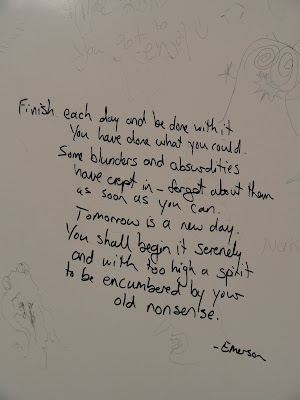 You get to
enjoy
Finish each day and be done with it
You have done what you could.
Some blunders and absurdities
have crept in - forget about them
as soon as you can.
Tomorrow is a new day.
You shall begin it serenely
and with too high a spirit
to be encumbered by your
old nonsense.
- Emerson